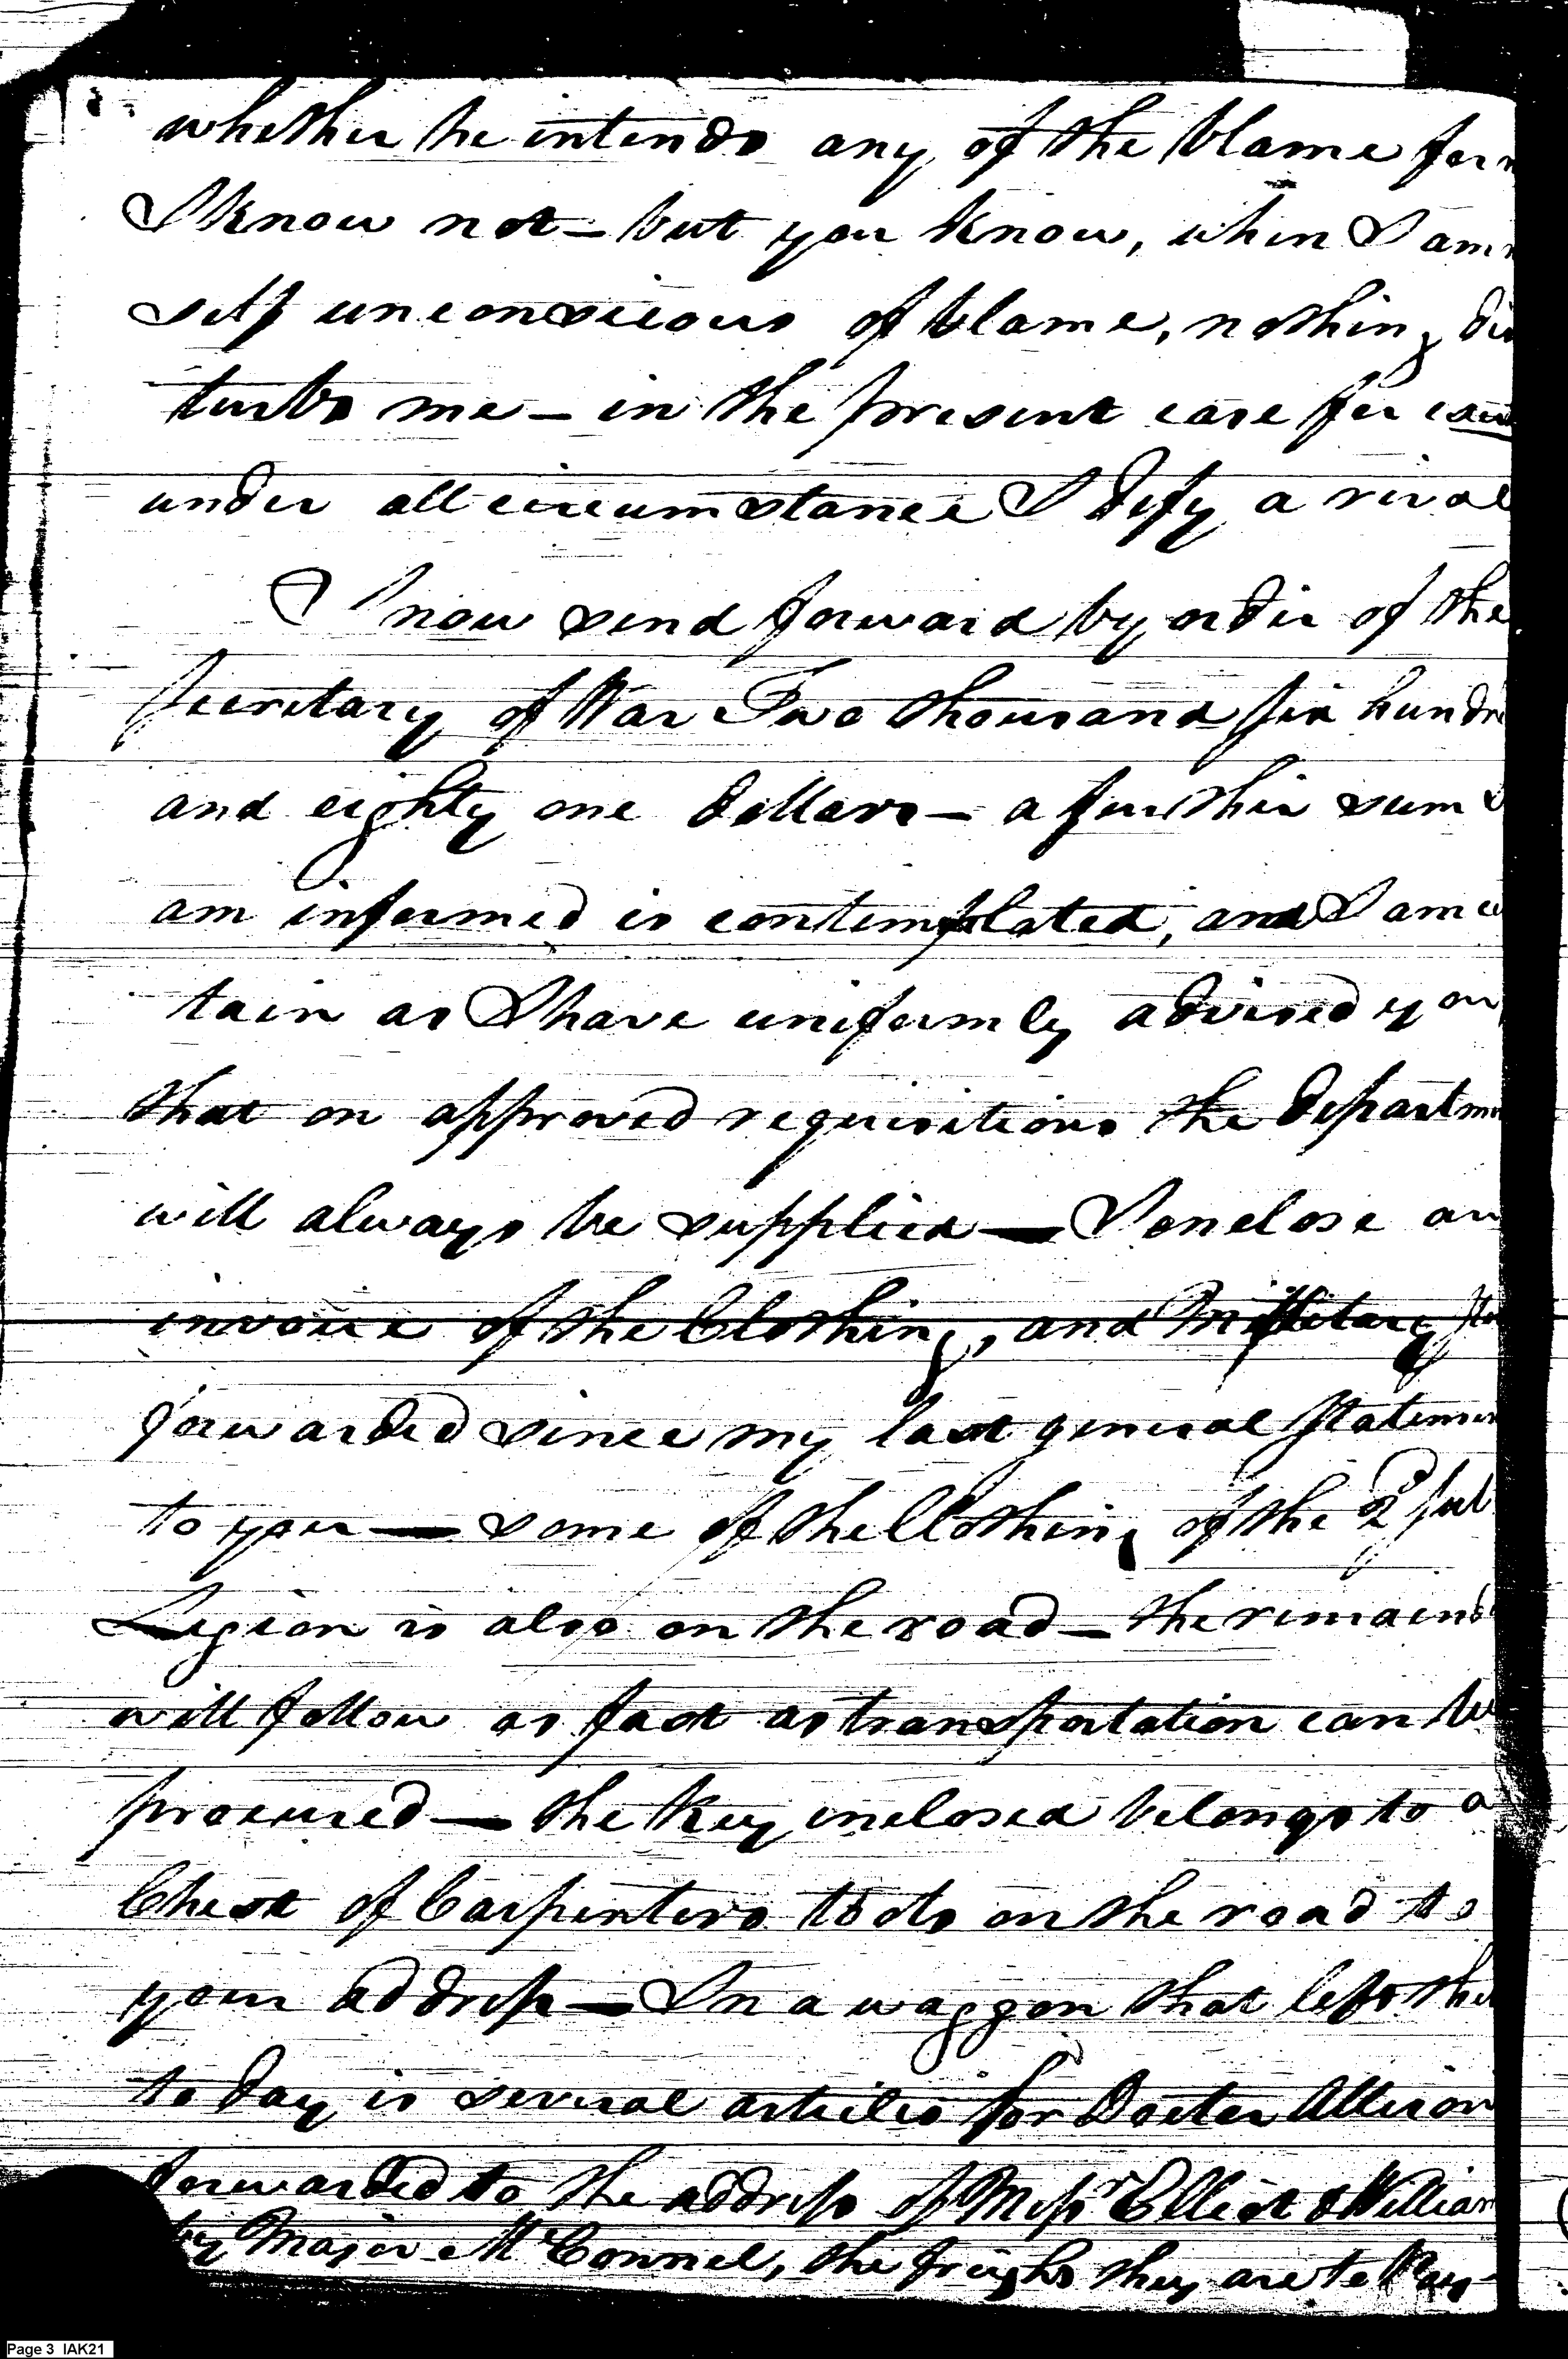 whether he intends any of the blame for
I know not – but you know, when I am
self unconscious of blame, nothing dis
turbs me – in the present case for
under all circumstance I defy a rival
I now send forward by order of the
Secretary of War Two thousand six hundre
and eighty one dollars – a further sum
am informed is contemplated, and I am
tain as I have uniformly advised you
that on approved requisitions the departme
will always be supplied — I enclose an
invoice of the Clothing, and Military
forwarded since my last general Statemen
to you — some of the Clothing of the 2d sub
Legion is also on the road – the remaind
will follow as fast as transportation can be
procured — the key inclosed belongs to a
Chest of Carpenters tools on the road to
your address — In a waggon that left
to day is several articles for Doctor Allison
forwarded to the address of Messrs Elliot & William
by Major McConnel, the freight they are to Pay
Page 3 IAK21